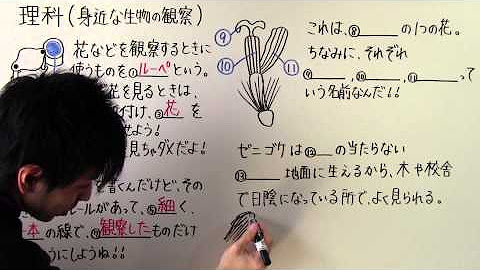 理科(身近な生物の観察)
花などを観察するときに
使うものを①ルーペという。
花を見るときは、
付け、③花を
せよう!
見ちゃダメだよ!
を書くんだけど、その
ルールがあって、⑤細く、
一本の線で、⑦観察したものだけ
うにしようね!!
⑨
⑩
⑪
これは、⑧の1つの花。
ちなみに、それぞれ
⑨、⑩、⑪って
いう名前なんだ!!
ゼニゴケは⑫の当たらない
⑬地面に生えるから、木や校舎
で日陰になっている所で、よく見られる。